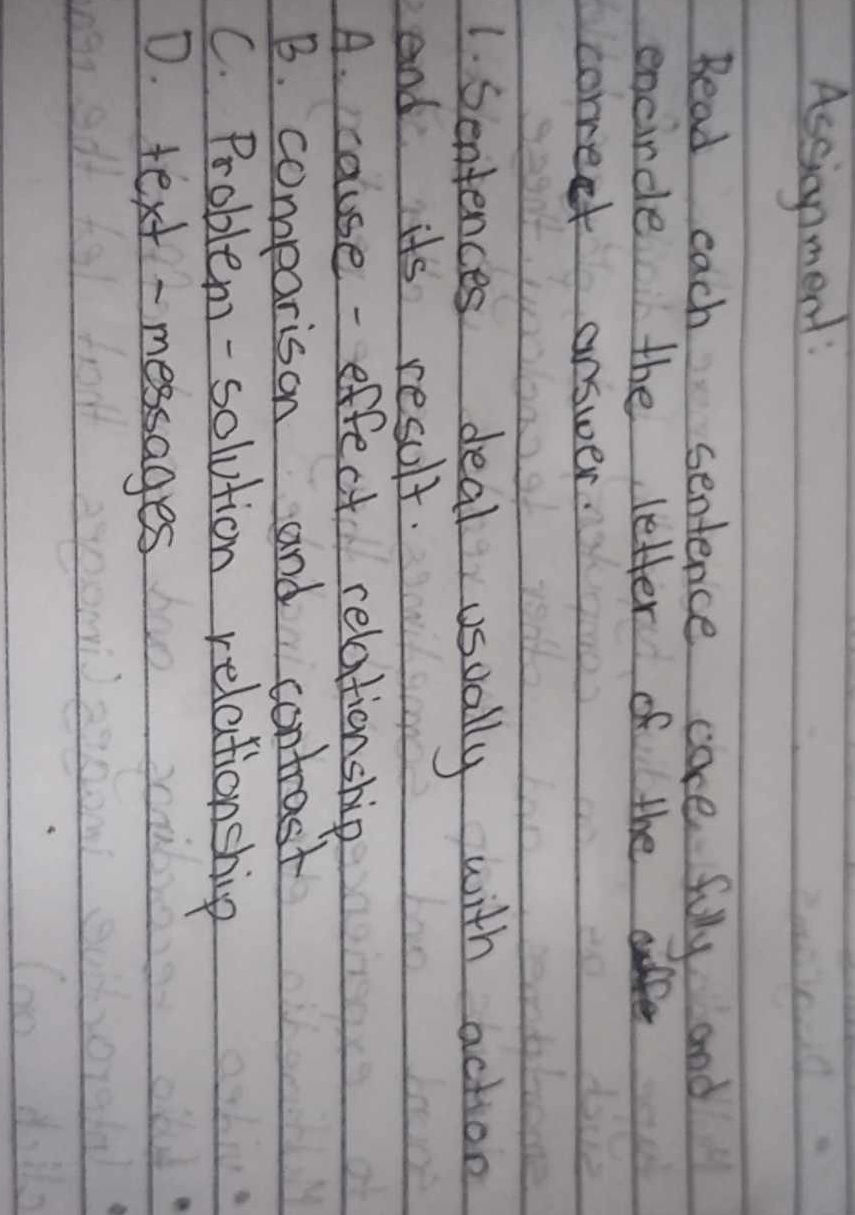 Assignment:
Read each sentence care-fully and
encircle the letter of the
correct answer.
1. Sentences deal usually with action
and its result.
A. cause - effect relationship
B. comparison and contrast
C. Problem - solution relationship
D. text - messages